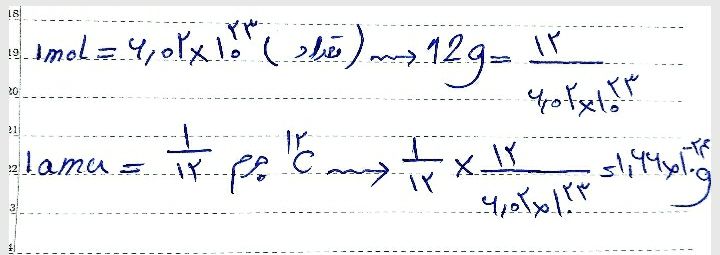 1mol = ۶,۰۲×۱۰^۲۳ (تعداد) ⟿ 12g = ۱۲/۶,۰۲×۱۰^۲۳
1amu = ۱/۱۲ جرم ^۱۲C ⟿ ۱/۱۲ × ۱۲/۶,۰۲×۱۰^۲۳ = ۱,۶۶×۱۰^-۲۴ g